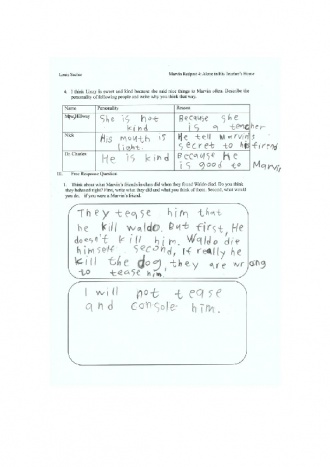 Louis Sachar Marvin Redpost 4: Alone in His Teacher's House
4. I think Linzy is sweet and kind because she said nice things to Marvin often. Describe the
personality of following people and write why you think that way.
Name Personality Reason
She is not kind Because she is a teacher
Nick His mouth is light. He tell Marvin's secret to his firend
Dr. Charles He is kind Because he is good to Marvin
III. Free Response Question
1. Think about what Marvin's friends did when they found Waldo died. Do you think
they behaved right? First, write what they did and what you think of them. Second, what would
you do. If you were a Marvin's friend.
They tease him that
he kill waldo. But first, He
doesn't kill him. Waldo die
himself second, If really he
kill the dog, they are wrong
to tease him.
I will not tease
and console him.